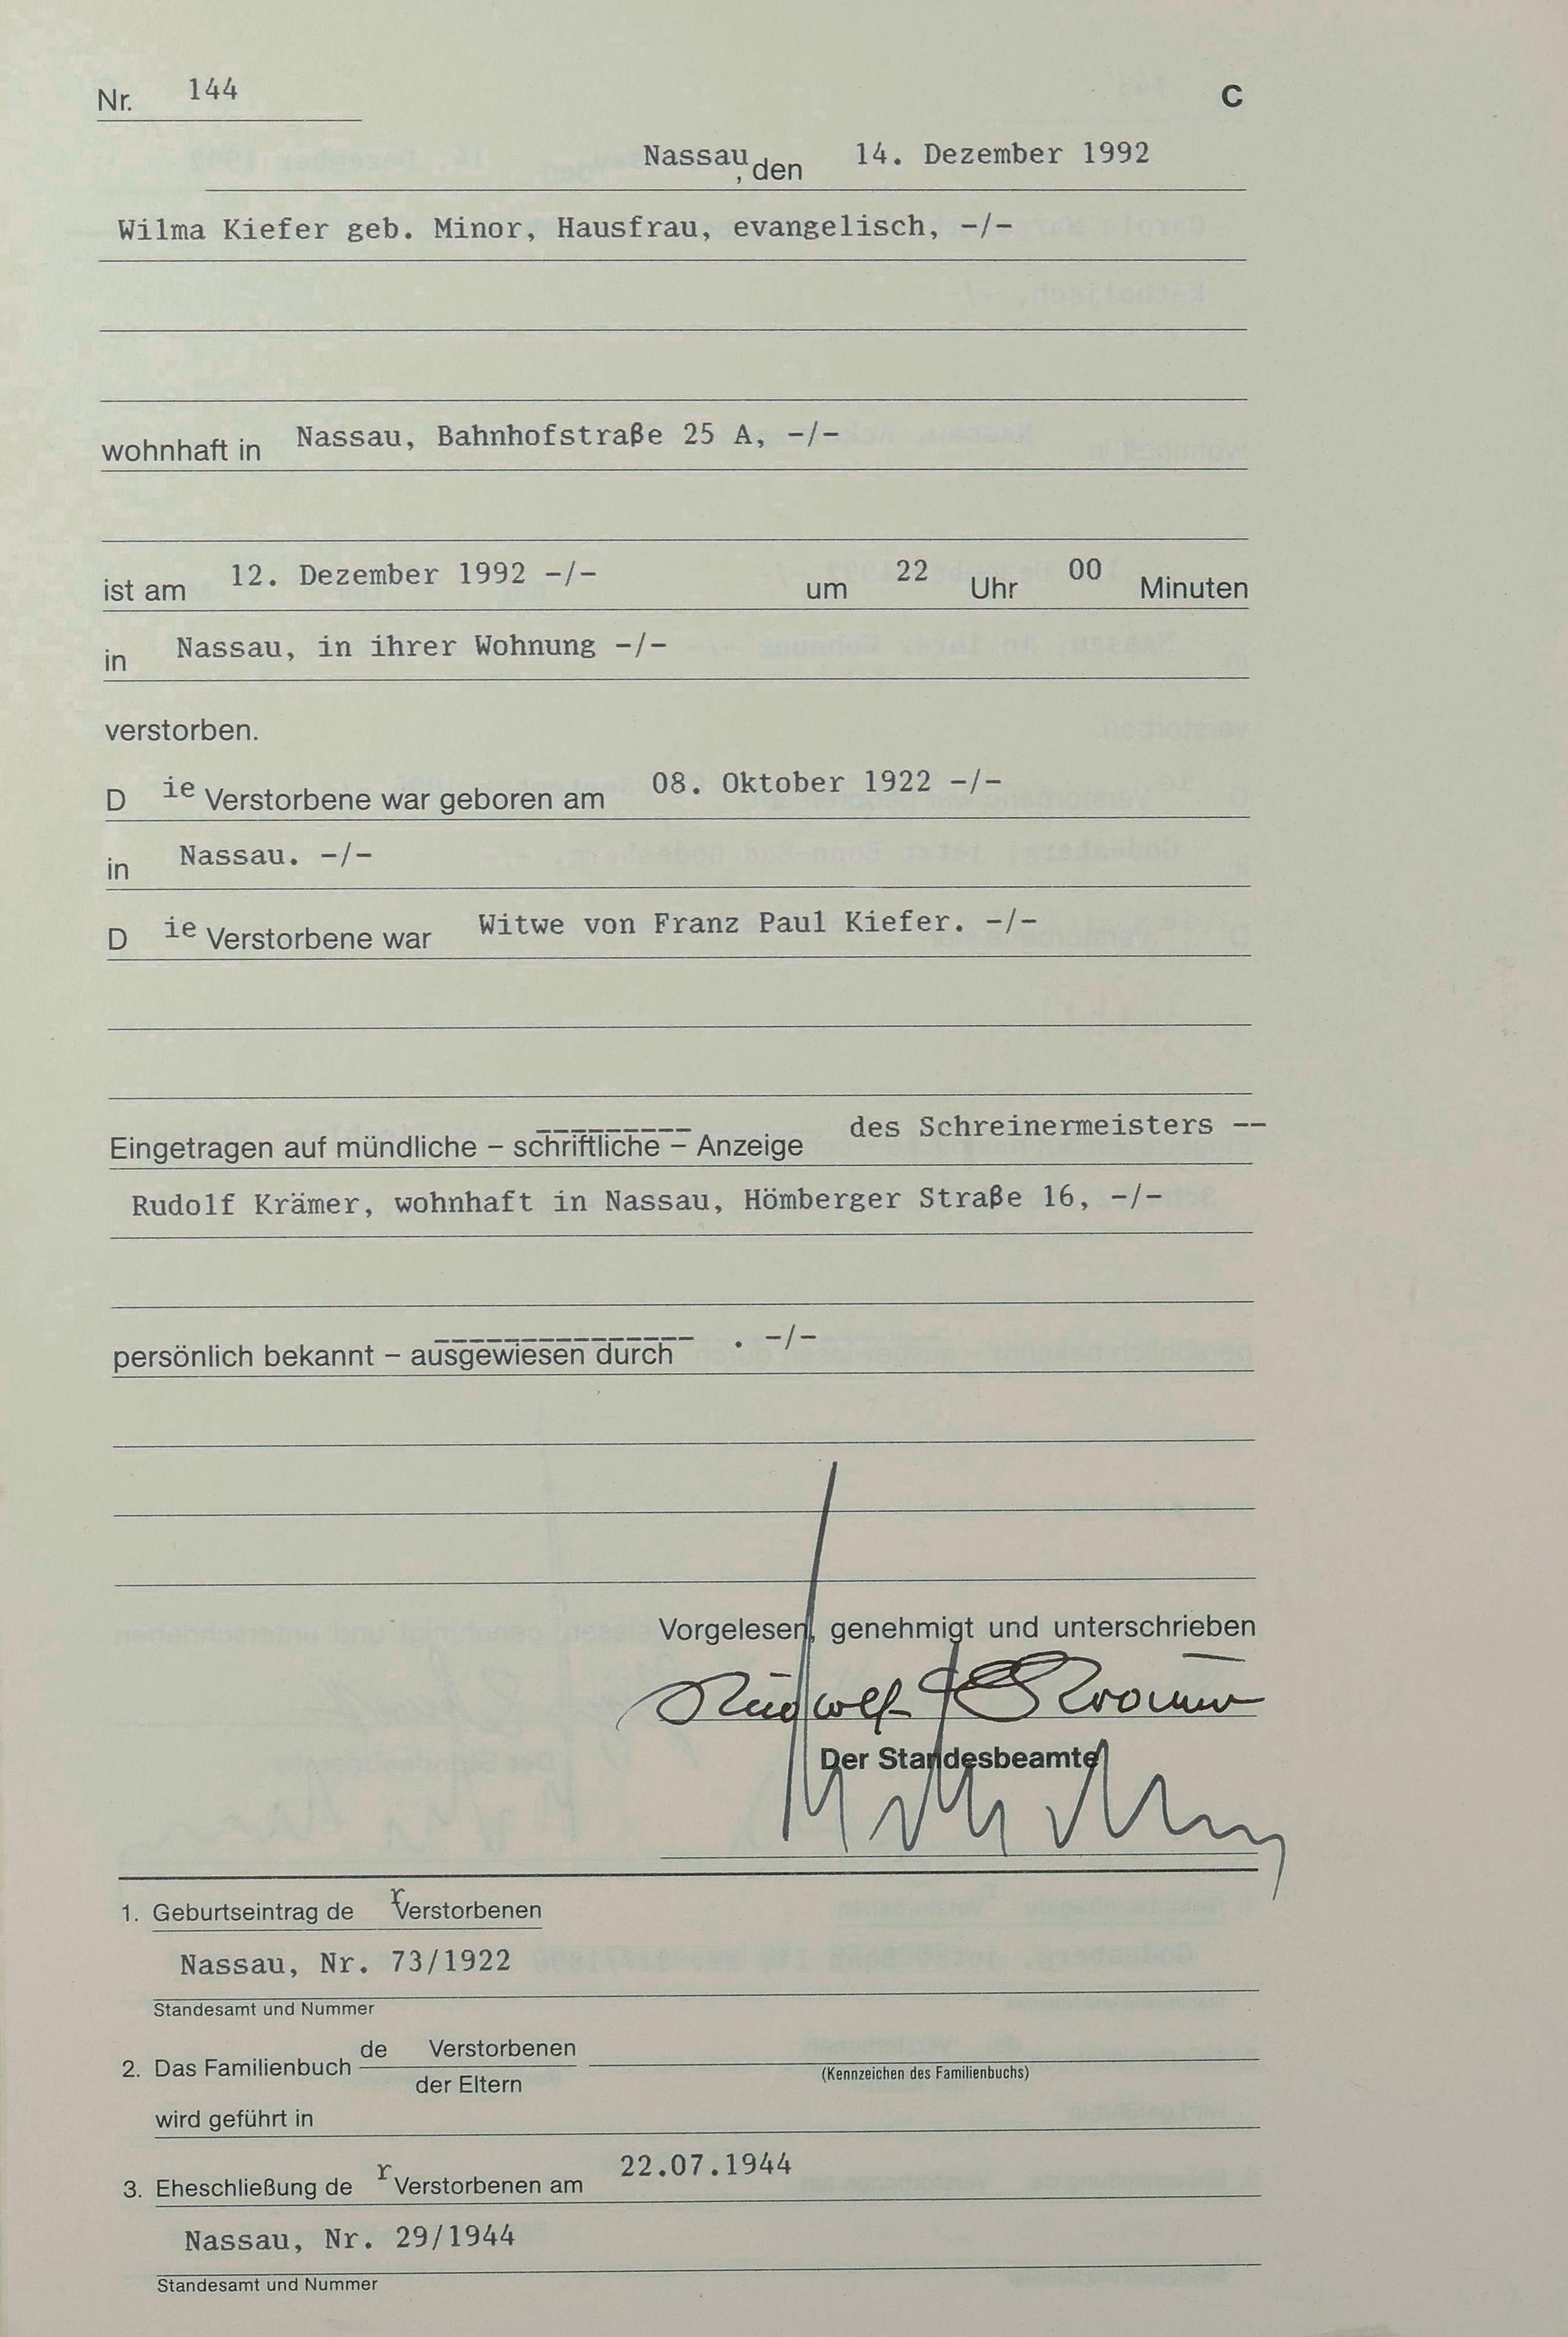 Nr. 144 C
Nassau, den 14. Dezember 1992
Wilma Kiefer geb. Minor, Hausfrau, evangelisch, -/-
wohnhaft in Nassau, Bahnhofstraße 25 A, -/-
ist am 12. Dezember 1992 -/- um 22 Uhr 00 Minuten
in Nassau, in ihrer Wohnung -/-
verstorben.
D ie Verstorbene war geboren am 08. Oktober 1922 -/-
in Nassau. -/-
D ie Verstorbene war Witwe von Franz Paul Kiefer. -/-
Eingetragen auf mündliche – schriftliche – Anzeige des Schreinermeisters --
Rudolf Krämer, wohnhaft in Nassau, Hömberger Straße 16, -/-
persönlich bekannt – ausgewiesen durch . -/-
Vorgelesen, genehmigt und unterschrieben
Rudolf Krämer
Der Standesbeamte
1. Geburtseintrag de r Verstorbenen
Nassau, Nr. 73/1922
Standesamt und Nummer
2. Das Familienbuch de Verstorbenen
der Eltern
(Kennzeichen des Familienbuchs)
wird geführt in
3. Eheschließung de r Verstorbenen am 22.07.1944
Nassau, Nr. 29/1944
Standesamt und Nummer